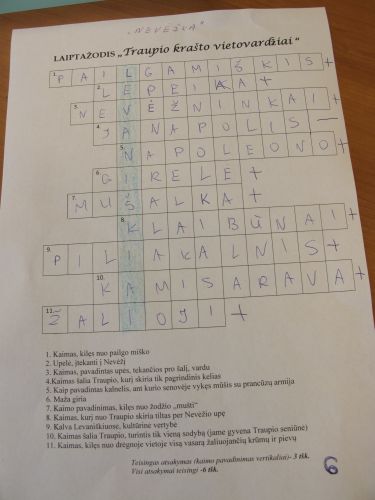 „NEVĖŽIA"
LAIPTAŽODIS „Traupio krašto vietovardžiai"
1. PAILGAMIŠKIS+
2. LEPEIKA+
3. NEVĖŽNINKAI+
4. JANAPOLIS−
5. NAPOLEONO+
6. GIRELĖ+
7. MUŠALKA+
8. KLAIBŪNAI+
9. PILIAKALNIS+
10. KAMISARAVA+
11. ŽALIOJI+
1. Kaimas, kilęs nuo pailgo miško
2. Upelė, įtekanti į Nevėžį
3. Kaimas, pavadintas upės, tekančios pro šalį, vardu
4. Kaimas šalia Traupio, kurį skiria tik pagrindinis kelias
5. Kaip pavadintas kalnelis, ant kurio senovėje vykęs mūšis su prancūzų armija
6. Maža giria
7. Kaimo pavadinimas, kilęs nuo žodžio „mušti"
8. Kaimas, kurį nuo Traupio skiria tiltas per Nevėžio upę
9. Kalva Levaniškiuose, kultūrinė vertybė
10. Kaimas šalia Traupio, turintis tik vieną sodybą (jame gyvena Traupio seniūnė)
11. Kaimas, kilęs nuo drėgnoje vietoje visą vasarą žaliuojančių krūmų ir pievų
Teisingas atsakymas (kaimo pavadinimas vertikaliai)- 3 tšk.
Visi atsakymai teisingi -6 tšk.
6